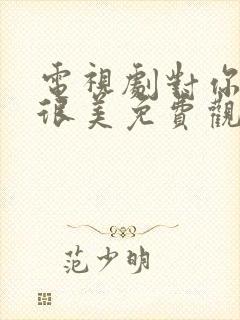 電視劇對你
很美免費觀
范少明